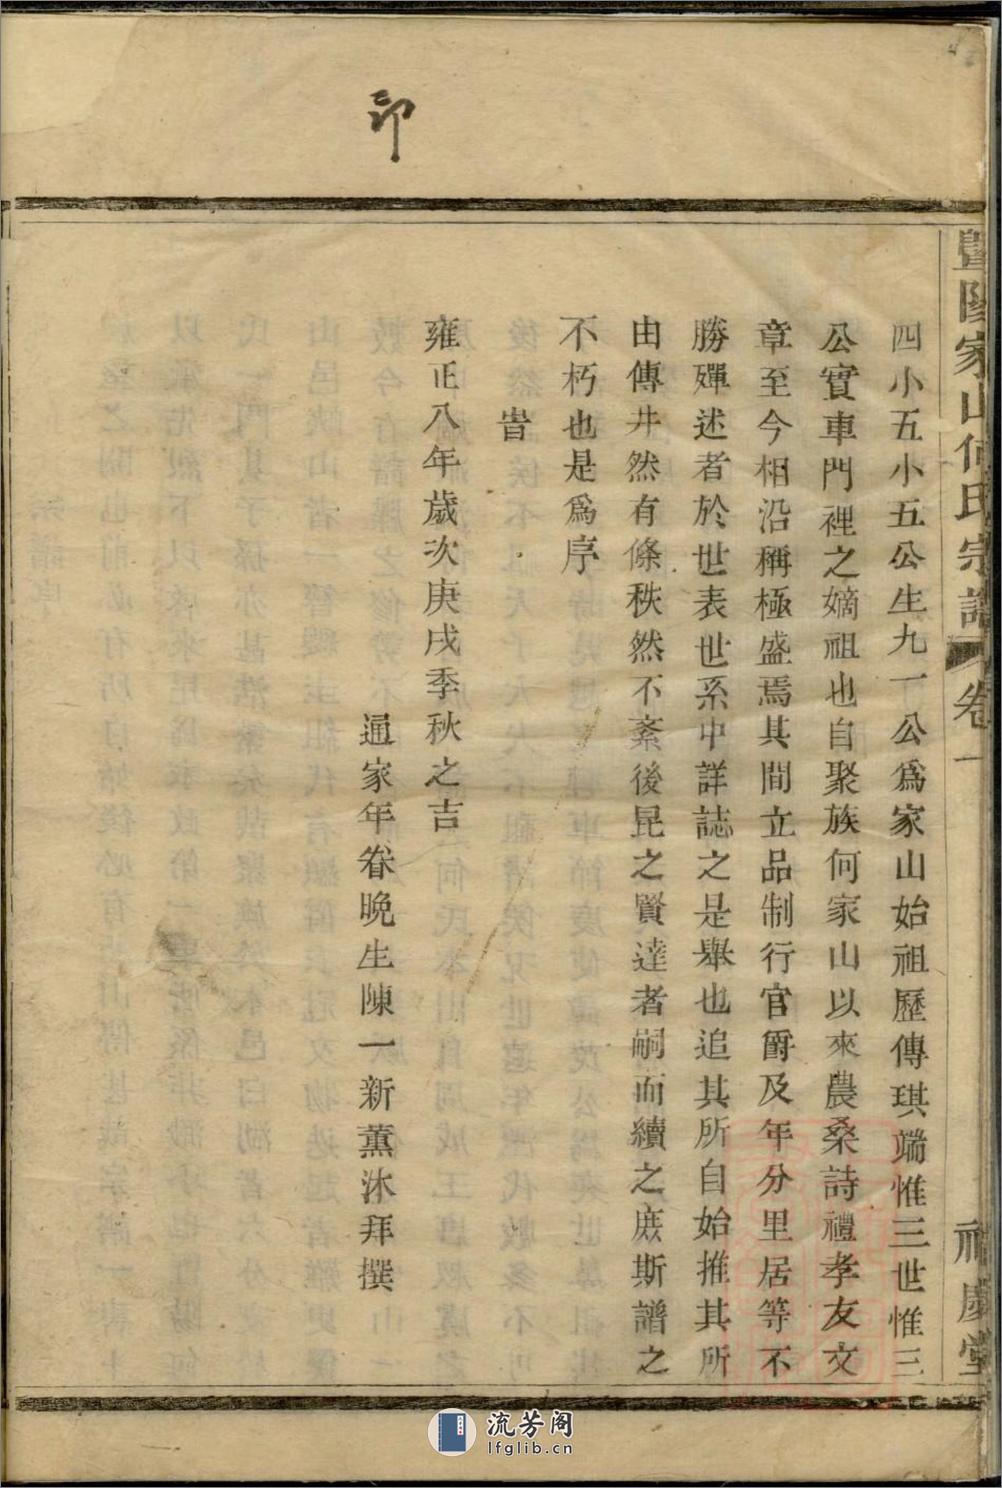 印
暨陽家山何氏宗譜 卷一 福慶堂
四小五小五公生九一公爲家山始祖歷傳琪端惟三世惟三
公實車門裡之嫡祖也自聚族何家山以來農桑詩禮孝友文
章至今相沿稱極盛焉其間立品制行官爵及年分里居等不
勝殫述者於世表世系中詳誌之是舉也追其所自始推其所
由傳井然有條秩然不紊後昆之賢達者嗣而續之庶斯譜之
不朽也是爲序
旹
雍正八年歲次庚戌季秋之吉
通家年眷晩生陳一新薰沐拜撰
流芳阁
lfglib.cn